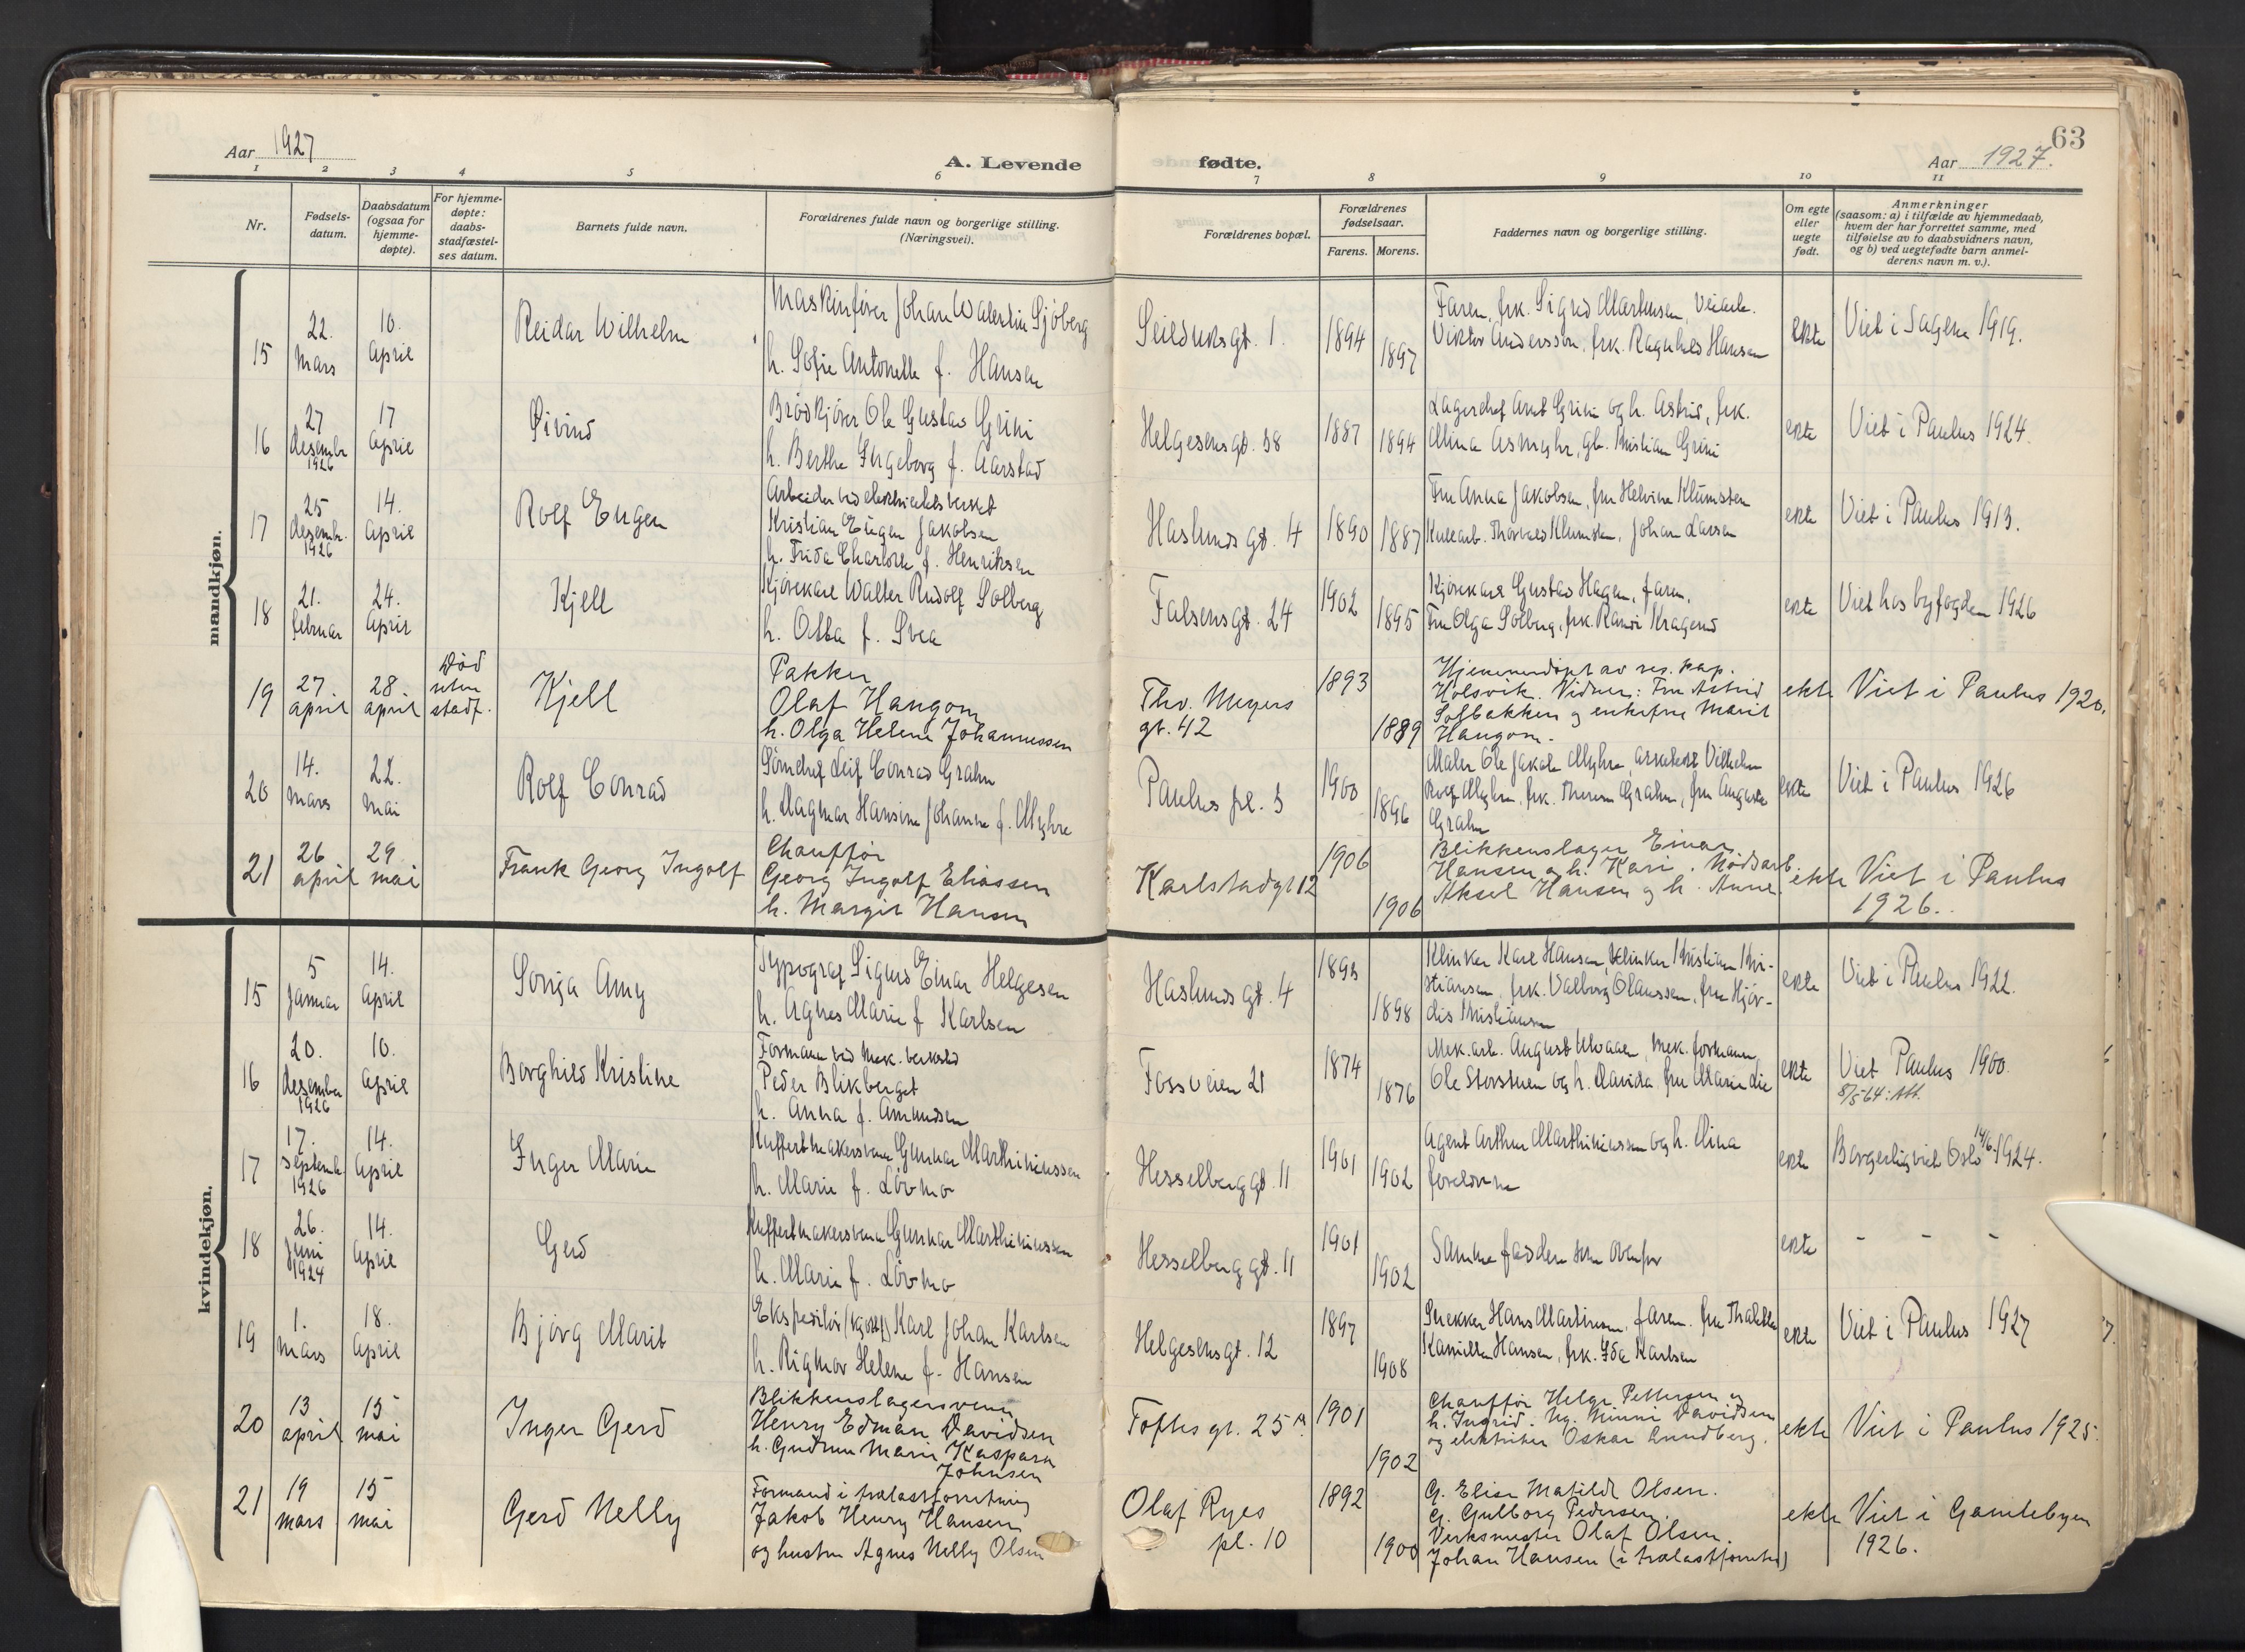 63
Aar 1927
A. Levende
fødte.
Aar 1927.
1 2 3 4 5 6 7 8 9 10 11
Nr.
Fødsels-
datum.
Daabsdatum
(ogsaa for
hjemme-
døpte).
For hjemme-
døpte:
daabs-
stadfæstel-
ses datum.
Barnets fulde navn.
Forældrenes fulde navn og borgerlige stilling.
(Næringsvei).
Forældrenes bopæl.
Forældrenes
fødselsaar.
Farens. Morens.
Faddernes navn og borgerlige stilling.
Om egte
eller
uegte
født.
Anmerkninger
(saasom: a) i tilfælde av hjemmedaab,
hvem der har forrettet samme, med
tilføielse av to daabsvidners navn,
og b) ved uegtefødte barn anmel-
derens navn m. v.).
mandkjøn.
15
22.
Mars
10.
April
Reidar Wilhelm
Maskinfører Johan Walentin Sjöberg
h. Sofie Antonette f. Hansen
Seilduksgt. 1.
1894
1897
Faren, frk. Sigrid Martinsen,
Viktor Andersson, frk. Ragnhild Hansen
ekte
Viet i Sagene 1919.
16
27
desembr
1926
17
April
Øivind
Brødkjører Ole Gustav Grini
h. Berthe Ingeborg f. Aarstad
Helgesensgt. 58
1887
1894
Lagerchef Grini og h. Astrid, frk.
Mina Asmyhr, gb. Kristian Grini
ekte
Viet i Paulus 1924.
17
25
desembr.
1926
14.
April
Rolf Eugen
Arbeider ved elektricitetsverket
Kristian Eugen Jakobsen
h. Frida Charlotte f. Henriksen
Haslunds gt. 4
1890
1887
Fru Anna Jakobsen, fru Helvine Klumsten
Thorvald Klumsten, Johan Larsen
ekte
Viet i Paulus 1913.
18
21.
februar
24.
April
Kjell
Kjørekar Walter Rudolf Solberg
h. Otta f. Svea
Falsensgt. 24
1902
1895
Kjørekar Gustav Hagen, faren,
Fru Olga Solberg, frk. Randi Kragerud
ekte
Viet hos byfogden 1926
19
27.
april
28.
april
Død
uten
stadf.
Kjell
Pakker
Olaf Haugom
h. Olga Helene Johannessen
Thv. Meyers
gt. 42
1893
1889
Hjemmedøpt av res. kap.
Holsvik. Vidner: Fru Astrid
Solbakken og enkefru Marit
Haugom.
ekte
Viet i Paulus 1920.
20
14.
Mars
22.
Mai
Rolf Conrad
Leif Conrad Grahn
h. Dagmar Hansine Johanne f. Myhre
Paulus pl. 3
1900
1896
Maler Ole Jakob Myhre, arkitekt Vilhelm
Rolf Myhre, frk. Therese Grahn, fru Augusta
Grahn
ekte
Viet i Paulus 1926
21
26
april
29
mai
Frank Georg Ingolf
Chauffør
Georg Ingolf Eliassen
h. Margit Hansen
Karlstadgt 12
1906
1906
Blikkenslager Einar
Hansen og h. Kari. Nødsarb.
Aksel Hansen og h. Anne.
ekte
Viet i Paulus
1926.
kvindekjøn.
15
5
Januar
14.
April
Sonja Amy
Typograf Sigurd Einar Helgesen
h. Agnes Marie f Karlsen
Haslunds gt. 4
1898
Klinker Karl Hansen, klinker Kristian Kri-
stiansen, frk. Valborg Olaussen, fru Hjør-
dis Kristiansen
ekte
Viet i Paulus 1922.
16
20.
desember
1926
10.
April
Borghild Kristine
Formann ved Mek. verksted
Peder Blikberget
h. Anna f. Amundsen
Fossveien 21
1874
1876
Mek. arb. August Ulvaaen, Mek. formann
Ole Storstuen og h. Davida, fru Marie Lie
ekte
Viet Paulus 1900.
8/5-64: Att.
17
17.
Septemb.
1926
14.
April
Inger Marie
Kuffertmakersvenn Gunnar Marthiniussen
h. Marie f. Lövmo
Hesselberggt. 11
1901
1902
Agent Arthur Marthiniussen og h. Mina
foreldrene
ekte
Borgerlig viet Oslo 14/6-1924.
18
26.
Juni
1924
14.
April
Gerd
Kuffertmakersvenn Gunnar Marthiniussen
h. Marie f. Lövmo
Hesselberg gt. 11
1901
1902
Samme faddere som ovenfor
ekte
- - -
19
1.
Mars
18.
April
Bjørg Marit
Ekspeditør Karl Johan Karlsen
h. Rigmor Helene f. Hansen
Helgesensgt. 12
1897
1908
Snekker Hans Martinsen, faren. fru Thalette
Kamilla Hansen, frk. Ida Karlsen
ekte
Viet i Paulus 1927
20
13
april
15
mai
Inger Gerd
Blikkenslagersvenn
Henry Edman Davidsen
h. Gudrun Marie Kaspara
Johnsen
Toftesgt. 25
1901
1902
Chauffør Helge Pettersen og
h. Ingrid. Ug. Minni Davidsen
og elektriker Oskar Lundberg.
ekte
Viet i Paulus 1925.
21
19
mars
15
mai
Gerd Nelly
Formand i trælastforretning
Jakob Henry Hansen
og hustru Agnes Nelly Olsen
Olaf Ryes
pl. 10
1892
1900
G. Elise Matilde Olsen.
G. Gulborg Pedersen.
Verksmester Olaf Olsen.
Johan Hansen (i trælastforretn)
ekte
Viet i Gamlebyen
1926.